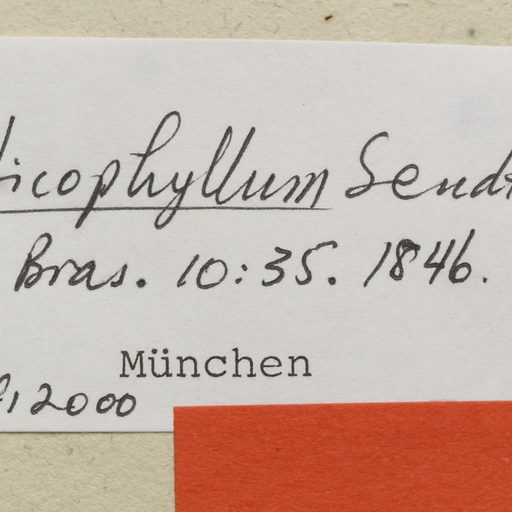 icophyllum Sendt
Bras. 10:35. 1846.
München
2000